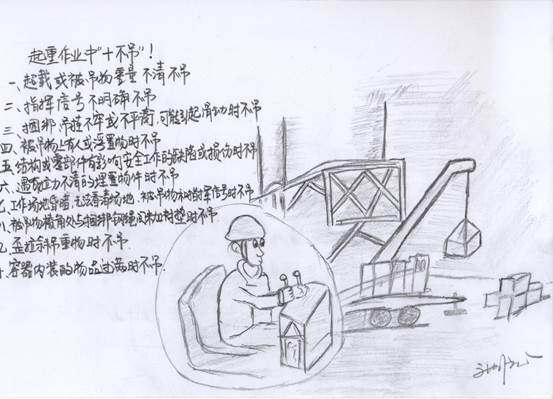 起重作业中"十不吊"！
一、起载或被吊物重量不清不吊
二、指挥信号不明确不吊
三、捆绑、吊挂不牢或不平衡,可能引起滑动时不吊
四、被吊物上有人或浮置物时不吊
五、结构或零部件有影响安全工作的缺陷或损伤时不吊
六、遇有拉力不清的埋置物件时不吊
七、工作场地昏暗,无法看清场地、被吊物和指挥信号时不吊
八、被吊物棱角处与捆绑钢绳间未加衬垫时不吊
九、歪拉斜吊重物时不吊
十、容器内装的物品过满时不吊.